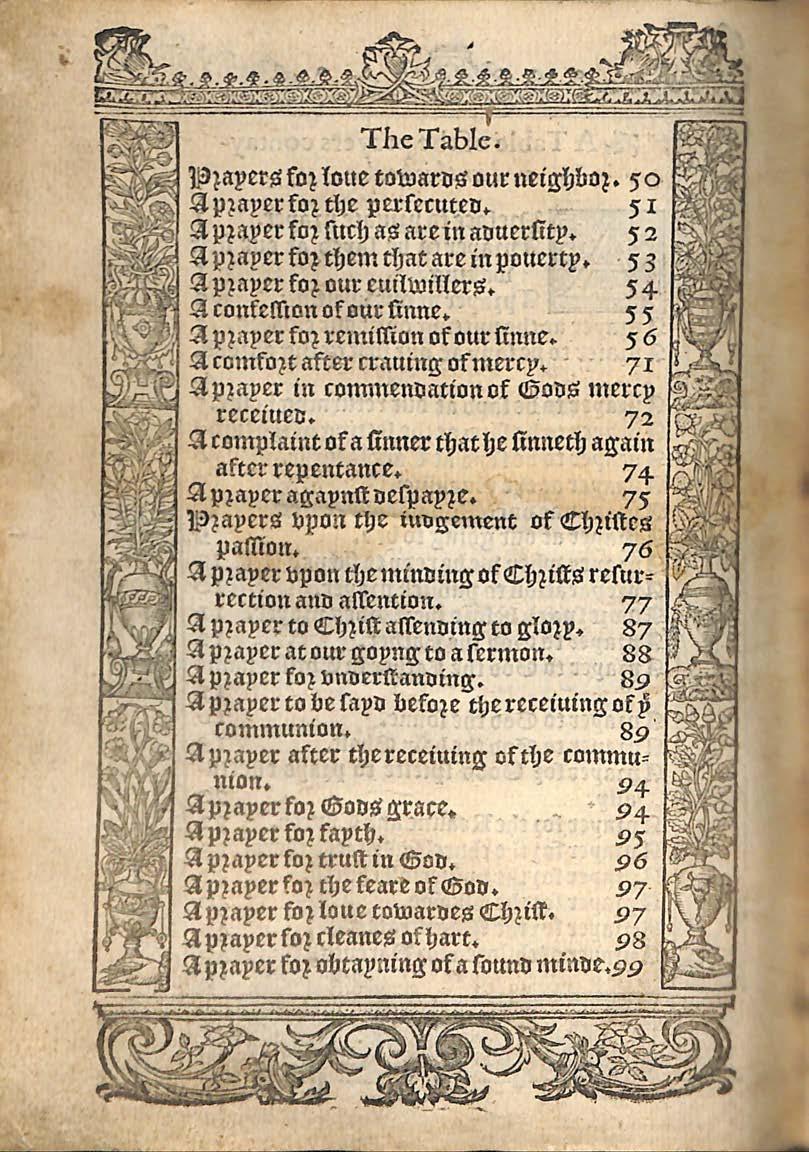 The Table.
Prayers for loue towards our neighbor. 50
A prayer for the persecuted. 51
A prayer for such as are in aduersity. 52
A prayer for them that are in pouerty. 53
A prayer for our euilwillers. 54
A confession of our sinne. 55
A prayer for remission of our sinne. 56
A comfort after crauing of mercy. 71
A prayer in commendation of Gods mercy
receiued. 72
A complaint of a sinner that he sinneth again
after repentance. 74
A prayer agaynst despayre. 75
Prayers vpon the iudgement of Christes
passion. 76
A prayer vpon the minding of Christs resur=
rection and assention. 77
A prayer to Christ assending to glory. 87
A prayer at our goyng to a sermon. 88
A prayer for vnderstanding. 89
A prayer to be sayd before the receiuing of yͤ
communion. 89
A prayer after the receiuing of the commu=
nion. 94
A prayer for Gods grace. 94
A prayer for fayth. 95
A prayer for trust in God. 96
A prayer for the feare of God. 97
A prayer for loue towardes Christ. 97
A prayer for cleanes of hart. 98
A prayer for obtayning of a sound minde. 99